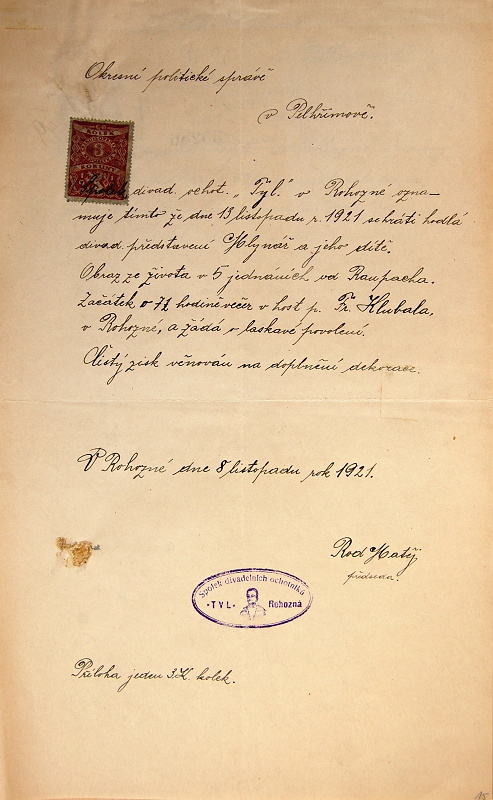 Okresní politické správě
v Pelhřimově.
KOLEK
5
KORUNY
Spolek divad. ochot. „Tyl." v Rohozné ozna-
muje tímto že dne 13 listopadu r. 1921 sehráti hodlá
divad. představení Mlynář a jeho dítě.
Obraz ze života v 5 jednáních od Raupacha.
Začátek o 7½ hodině večer v host p. Fr. Klubala,
v Rohozné, a žádá o laskavé povolení.
Čistý zisk věnován na doplnění dekorace.
V Rohozné dne 8 listopadu rok 1921.
Rod Matěj
předseda.
Spolek divadelních ochotníků
• TYL • Rohozná
Příloha jeden 3 K. kolek.
15